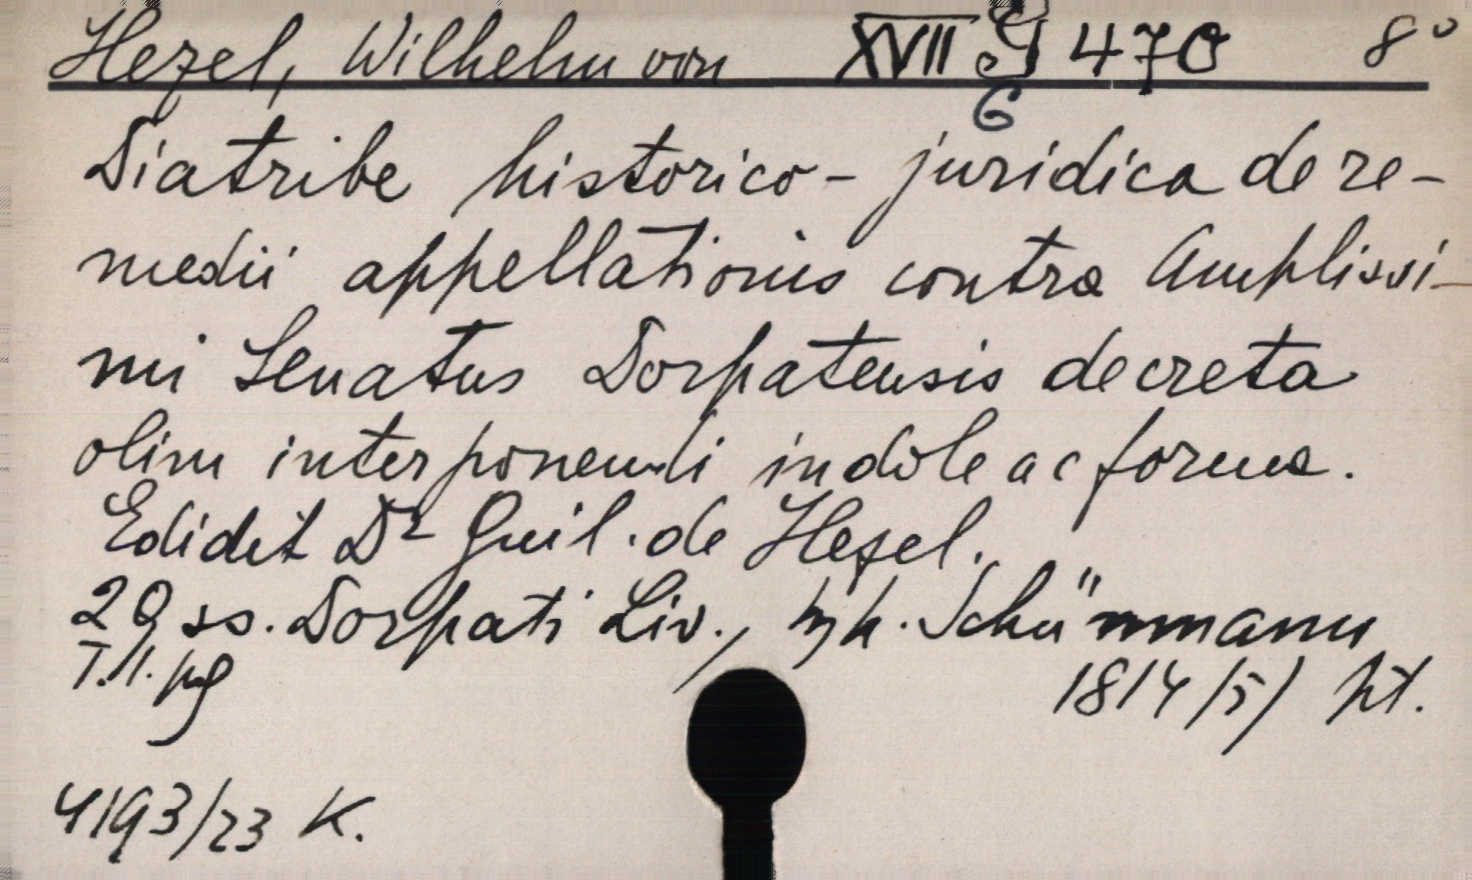 Hezel, Wilhelm von XVII G 470 8°
6
Diatribe historico-juridica de re-
medii appellationis contra Amplissi-
mi Senatus Dorpatensis decreta
olim interponendi indole ac forma.
Edidit Dr Guil. de Hezel.
29 ss. Dorpati Liv., Schünmann
1814/5/
4193/23 K.